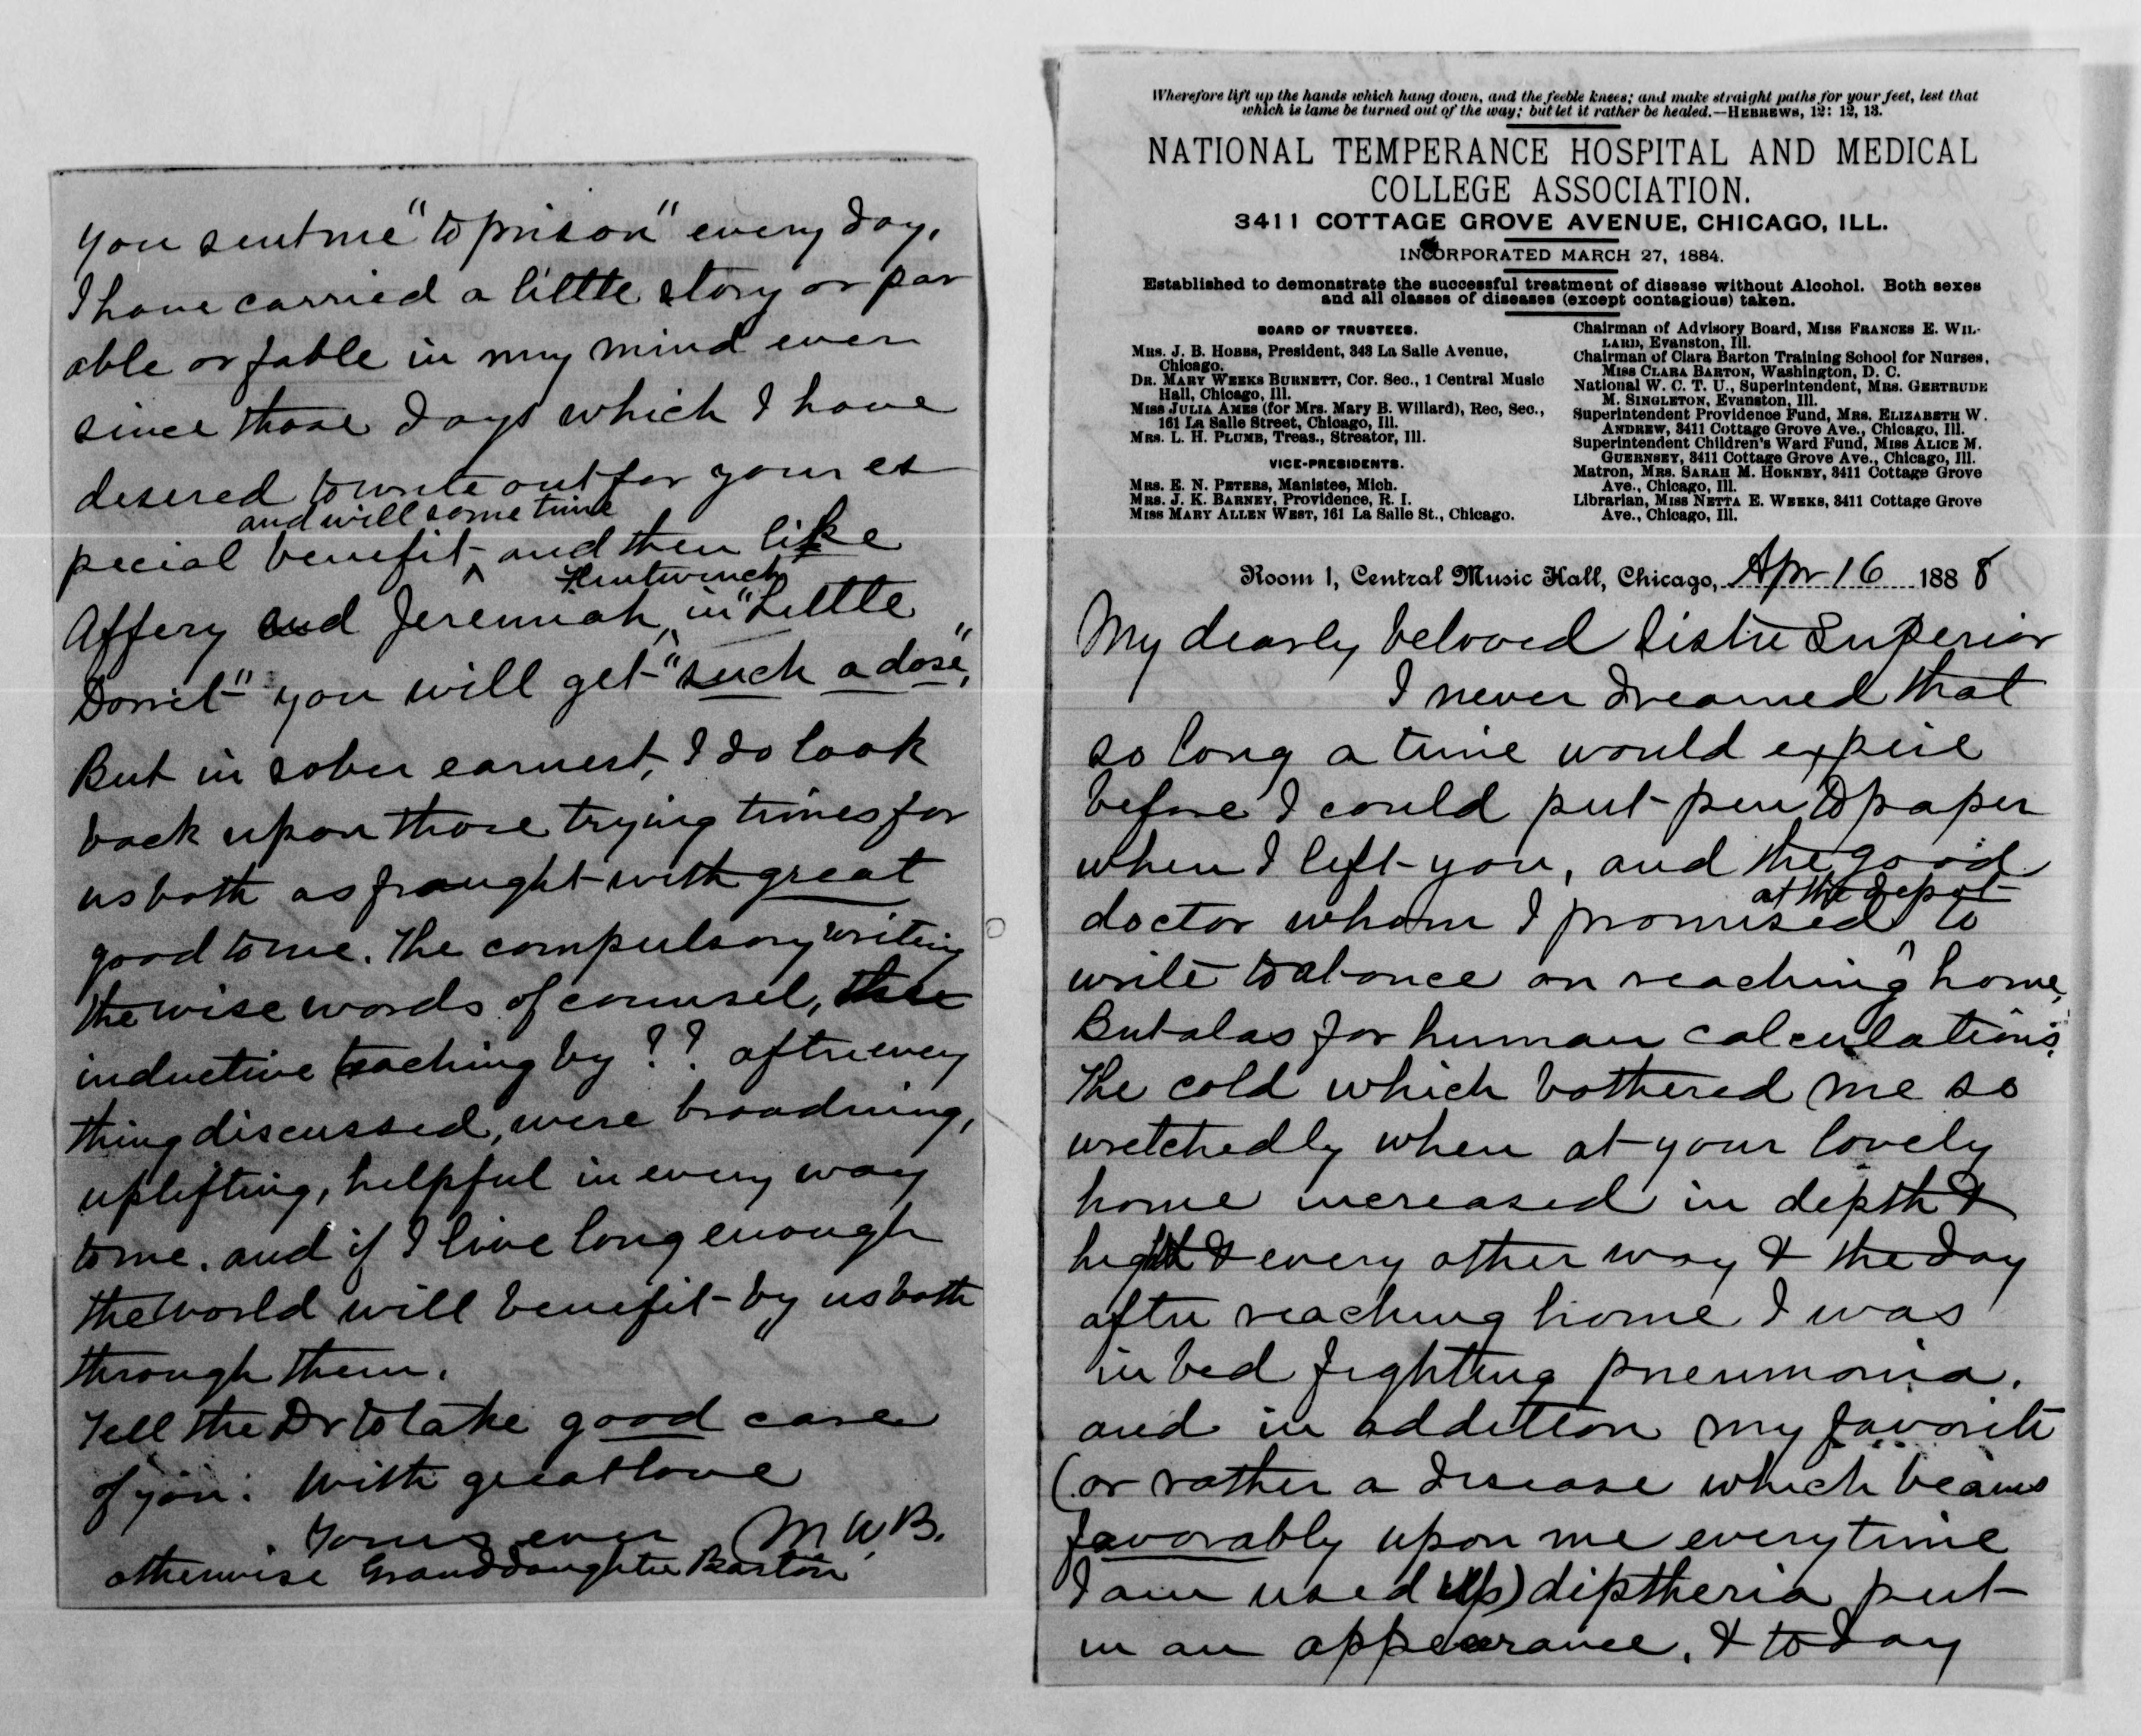 you sent me "to prison" every day.
I have carried a little story or par
able or fable in my mind ever
since those days which I have
desired to write out for your es
and will some time
pecial benefit ^ and then like
Flintwinch
Affery and Jeremiah ^ in "Little
Dorrit" you will get "such a dose".
But in sober earnest, I do look
back upon those trying times for
us both as fraught with great
good to me. The compulsory writing
the wise words of counsel, the
inductive teaching by ?? after every
thing discussed, were broadning,
uplifting, helpful in every way
to me. and if I live long enough
the world will benefit by us both
through them.
Tell the Dr to take good care
of you. With great love
Yours ever M W B.
otherwise Granddaughter Barton
Wherefore lift up the hands which hang down, and the feeble knees; and make straight paths for your feet, lest that
which is lame be turned out of the way; but let it rather be healed.—HEBREWS, 12: 12, 13.
NATIONAL TEMPERANCE HOSPITAL AND MEDICAL
COLLEGE ASSOCIATION.
3411 COTTAGE GROVE AVENUE, CHICAGO, ILL.
INCORPORATED MARCH 27, 1884.
Established to demonstrate the successful treatment of disease without Alcohol. Both sexes
and all classes of diseases (except contagious) taken.
BOARD OF TRUSTEES.
MRS. J. B. HOBBS, President, 343 La Salle Avenue,
Chicago.
DR. MARY WEEKS BURNETT, Cor. Sec., 1 Central Music
Hall, Chicago, Ill.
MISS JULIA AMES (for Mrs. Mary B. Willard), Rec, Sec.,
161 La Salle Street, Chicago, Ill.
MRS. L. H. PLUMB, Treas., Streator, Ill.
VICE-PRESIDENTS.
MRS. E. N. PETERS, Manistee, Mich.
MRS. J. K. BARNEY, Providence, R. I.
MISS MARY ALLEN WEST, 161 La Salle St., Chicago.
Chairman of Advisory Board, MISS FRANCES E. WIL-
LARD, Evanston, Ill.
Chairman of Clara Barton Training School for Nurses,
MISS CLARA BARTON, Washington, D. C.
National W. C. T. U., Superintendent, MRS. GERTRUDE
M. SINGLETON, Evanston, Ill.
Superintendent Providence Fund, MRS. ELIZABETH W.
ANDREW, 3411 Cottage Grove Ave., Chicago, Ill.
Superintendent Children's Ward Fund, MISS ALICE M.
GUERNSEY, 3411 Cottage Grove Ave., Chicago, Ill.
Matron, MRS. SARAH M. HORNBY, 3411 Cottage Grove
Ave., Chicago, Ill.
Librarian, MISS NETTA E. WEEKS, 3411 Cottage Grove
Ave., Chicago, Ill.
Room 1, Central Music Hall, Chicago, Apr 16 1888
My dearly beloved Sister Superior
I never dreamed that
so long a time would expire
before I could put pen to paper
when I left you, and the good
at the depot
doctor whom I promised ^ to
write to at once on reaching home,
But alas for human calculations.
The cold which bothered me so
wretchedly when at your lovely
home increased in depth &
hight & every other way & the day
after reaching home I was
in bed fighting pneumonia.
and in addition my favorite
(or rather a disease which beams
favorably upon me everytime
I am used up) diptheria put
in an appearance. & today